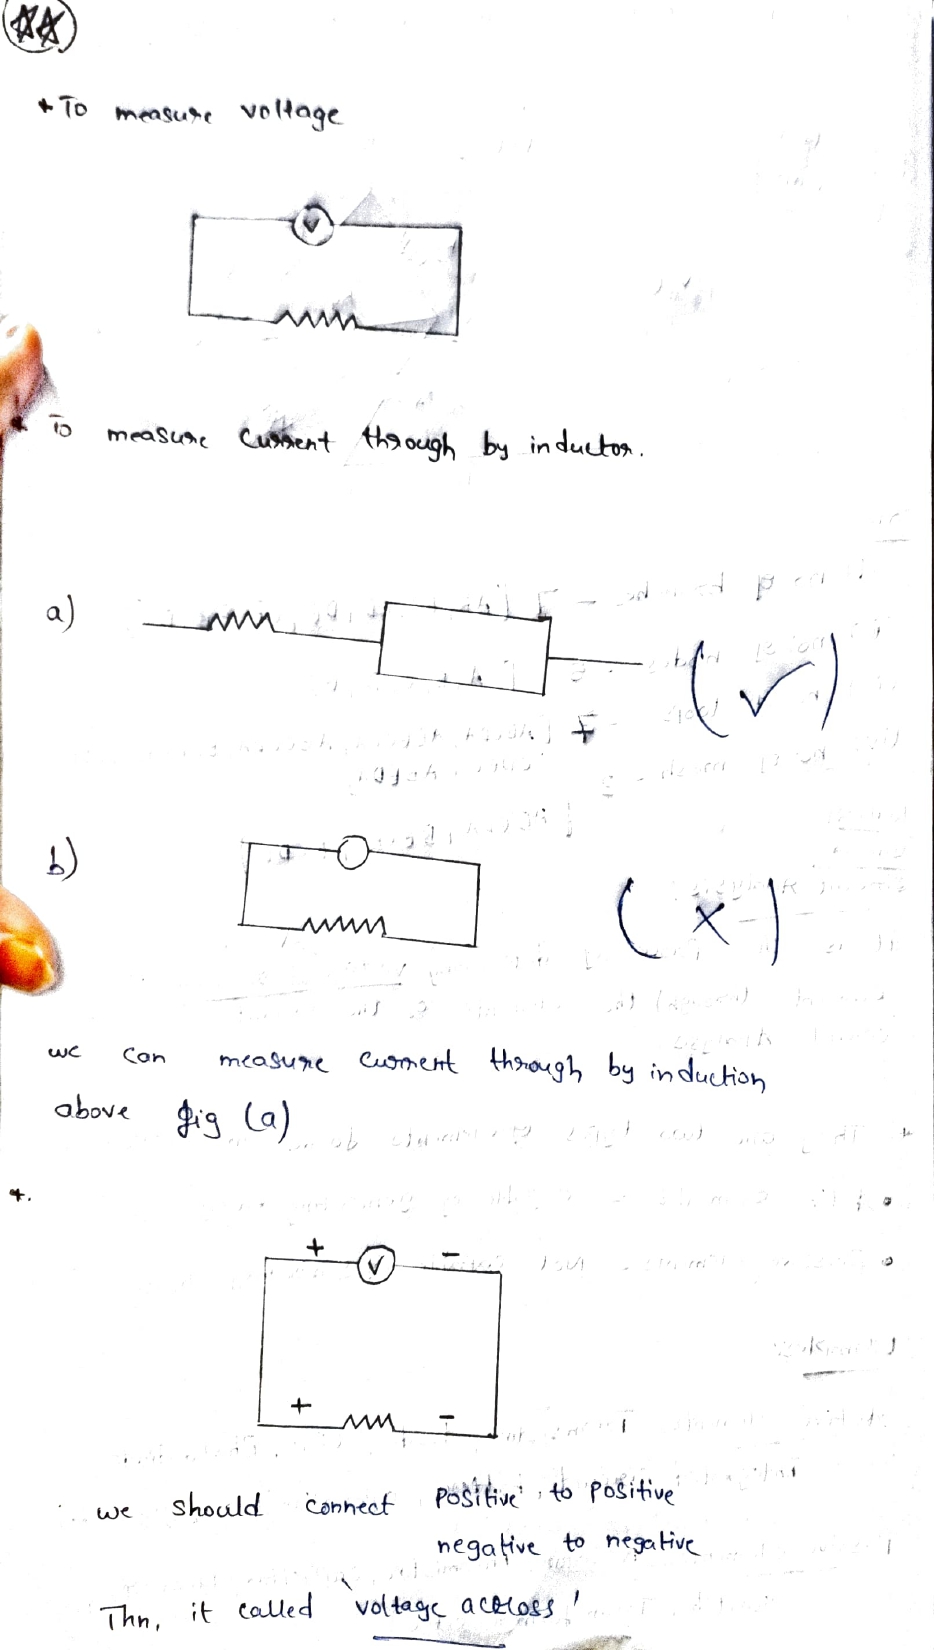 * To measure voltage
V
* To measure current through by inductor.
a)
(✓)
b)
(×)
we can measure current through by induction
above fig (a)
*.
+ V -
+ -
we should connect positive to positive
negative to negative
Thn, it called 'voltage accross'